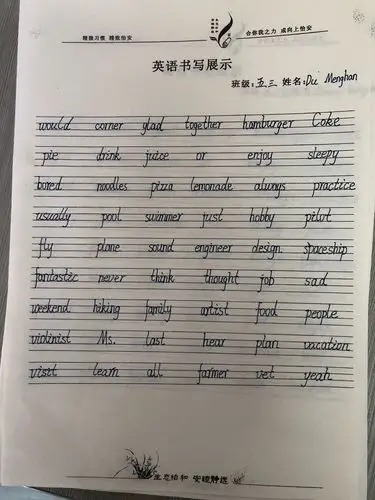 精致习惯 精致怡安
合你我之力 成向上怡安
英语书写展示
班级:五三 姓名:Du Menghan
would corner glad together hamburger Coke
pie drink juice or enjoy sleepy
bored noodles pizza lemonade always practice
usually pool swimmer just hobby pilot
fly plane sound engineer design. spaceship
fantastic never think thought job sad
weekend hiking family artist food people
violinist Ms. last hear plan vacation
visit learn all farmer vet yeah
生态怡和 安暖静远